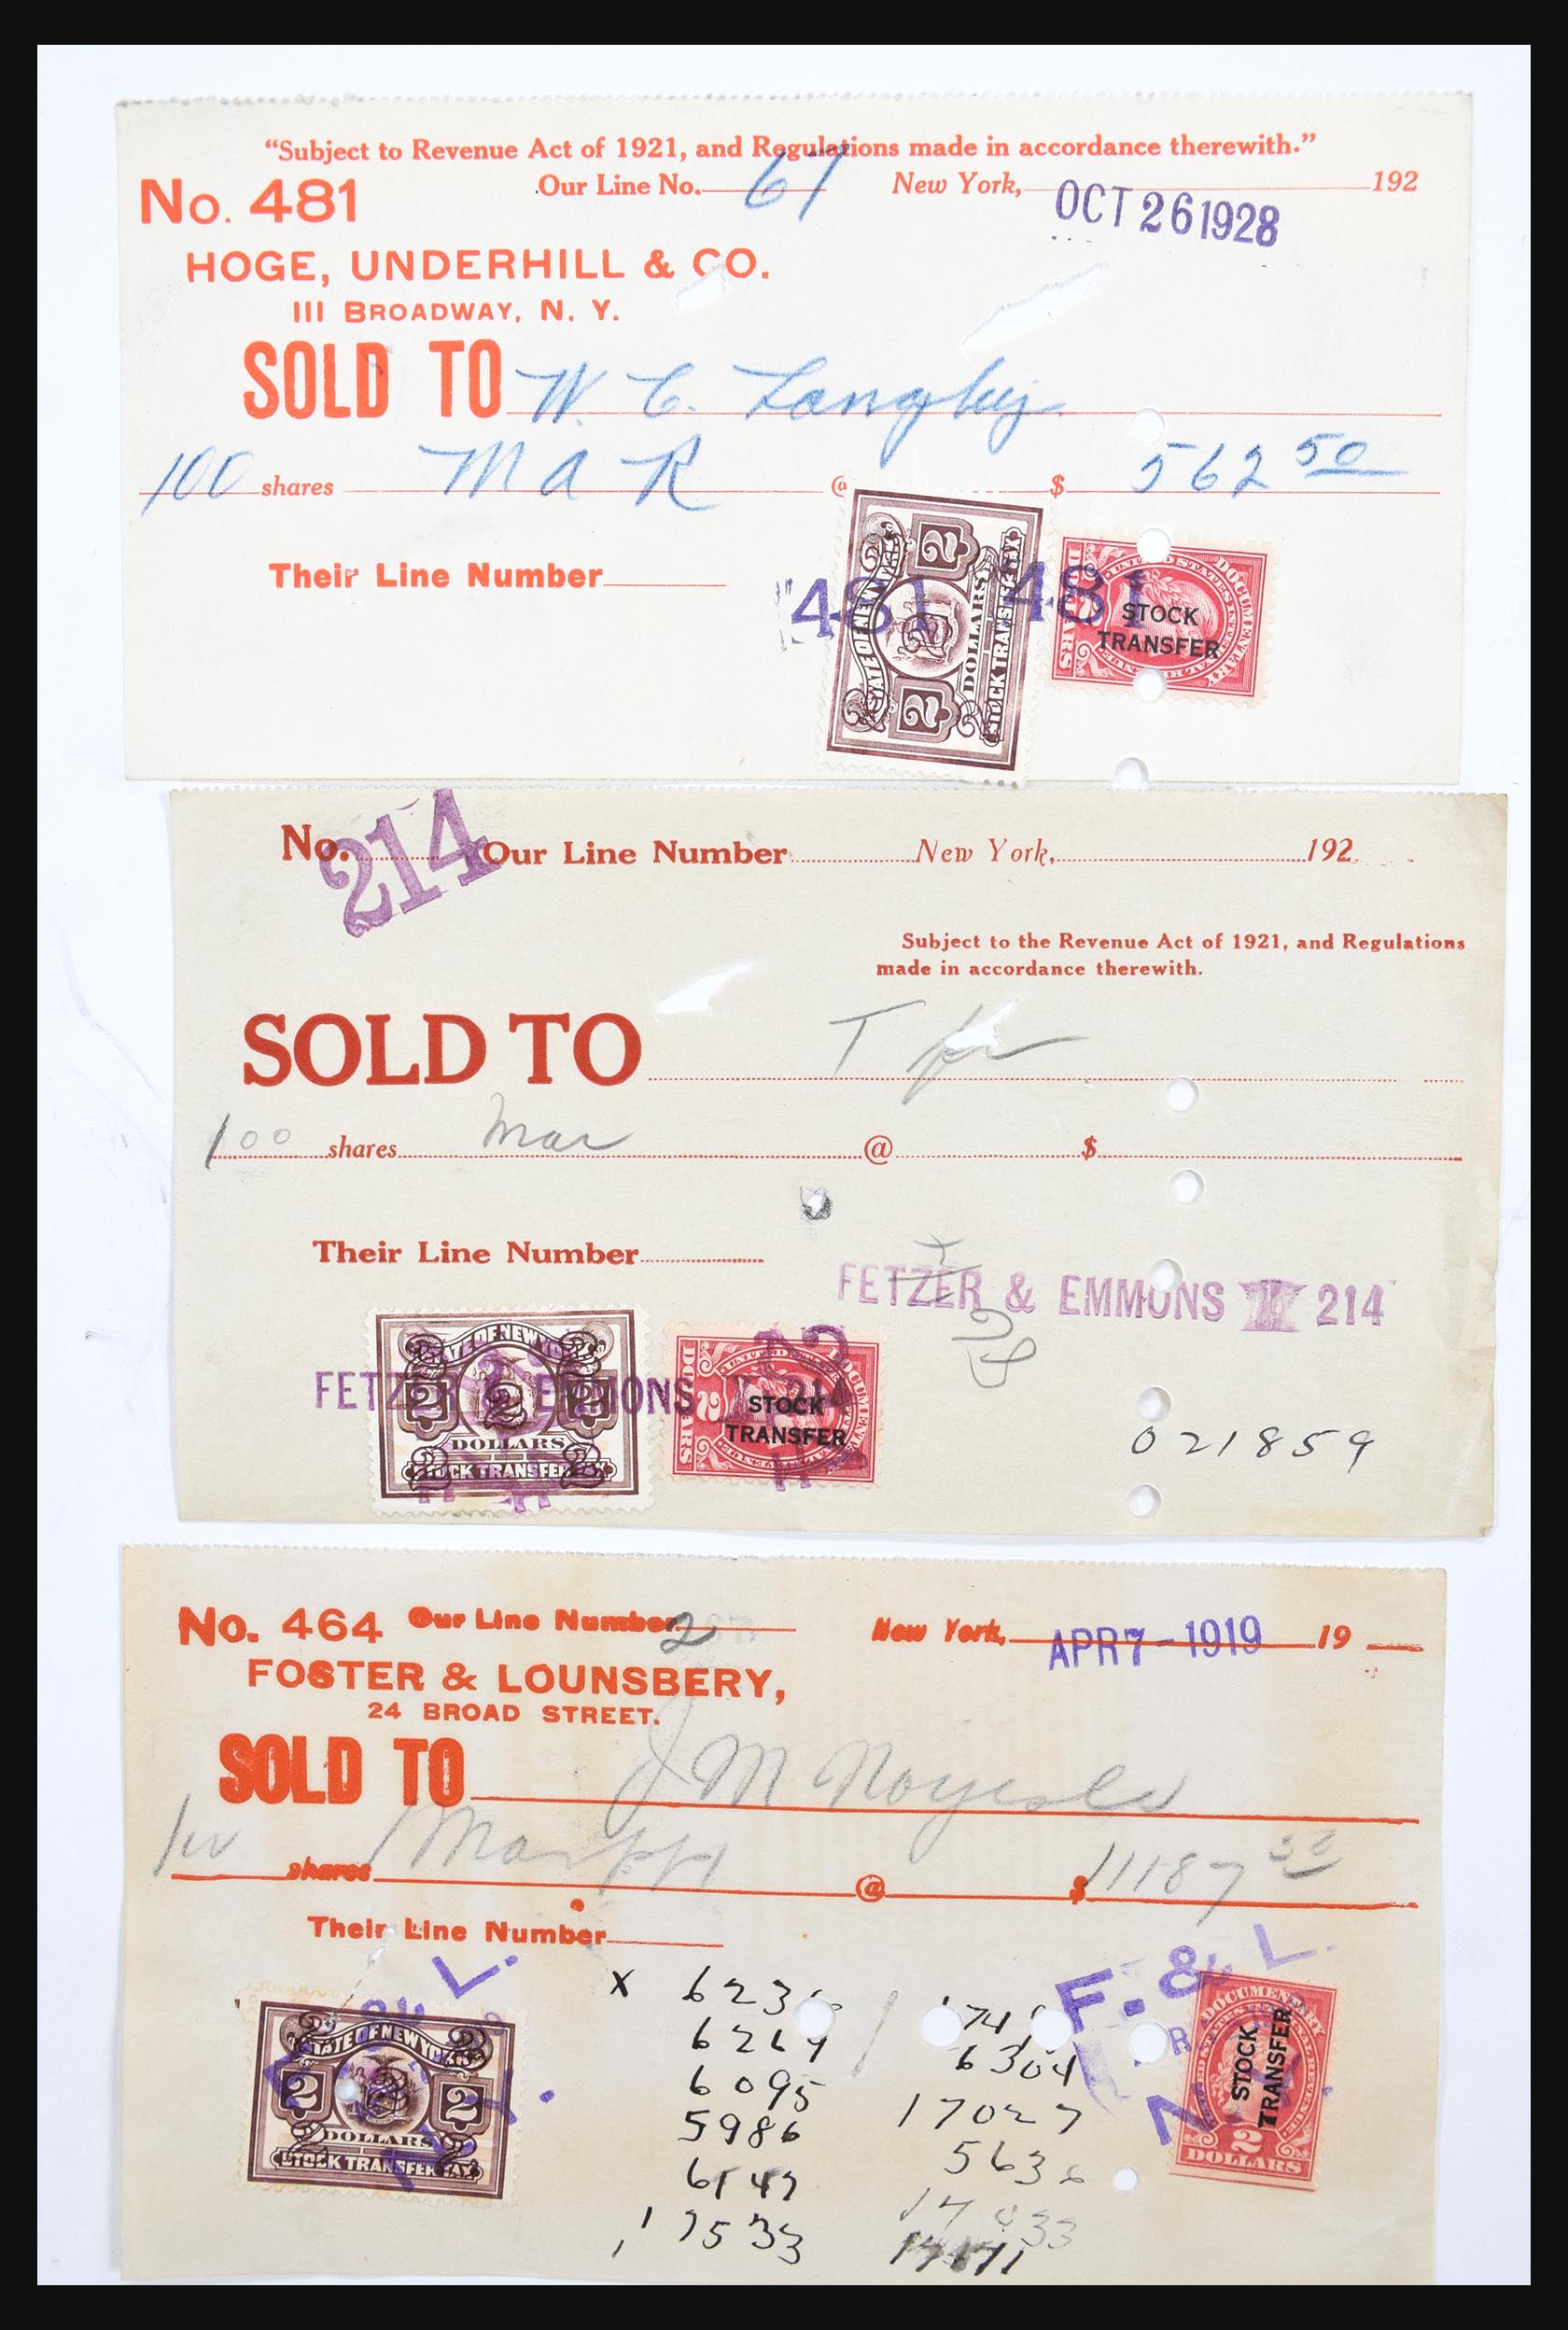 "Subject to Revenue Act of 1921, and Regulations made in accordance therewith."
No. 481 Our Line No. 67 New York, OCT 26 1928 192
HOGE, UNDERHILL & CO.
111 BROADWAY, N. Y.
SOLD TO W. C. Langley
100 shares M a R @ $ 562 50
Their Line Number
481 481
STATE OF NEW YORK
2 2
DOLLARS
STOCK TRANSFER TAX
UNITED STATES INTER. REVENUE
DOCUMENTARY
STOCK
TRANSFER
DOLLARS
No. 214 Our Line Number New York, 192
Subject to the Revenue Act of 1921, and Regulations
made in accordance therewith.
SOLD TO T
100 shares Mar @ $
Their Line Number
FETZER & EMMONS 214
FETZER & EMMONS 214
STATE OF NEW YORK
2 2 2
DOLLARS
STOCK TRANSFER TAX
DOCUMENTARY
STOCK
TRANSFER
DOLLARS
021859
No. 464 Our Line Number 2 New York, APR 7-1919 19
FOSTER & LOUNSBERY,
24 BROAD STREET.
SOLD TO J M
shares Mar pfd @ $ 11187 50
Their Line Number
F. & L.
N. Y.
STATE OF NEW YORK
2 2
DOLLARS
STOCK TRANSFER TAX
x 623
6304
6095 17027
5986
6147
17533
F. & L.
N. Y.
DOCUMENTARY
STOCK
TRANSFER
2
DOLLARS